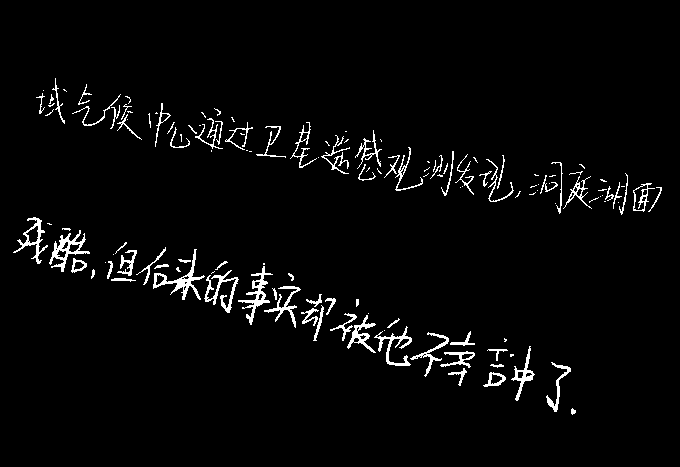 域气候中心通过卫星遥感观测发现,洞庭湖面
残酷,但后来的事实却被他不幸言中了.